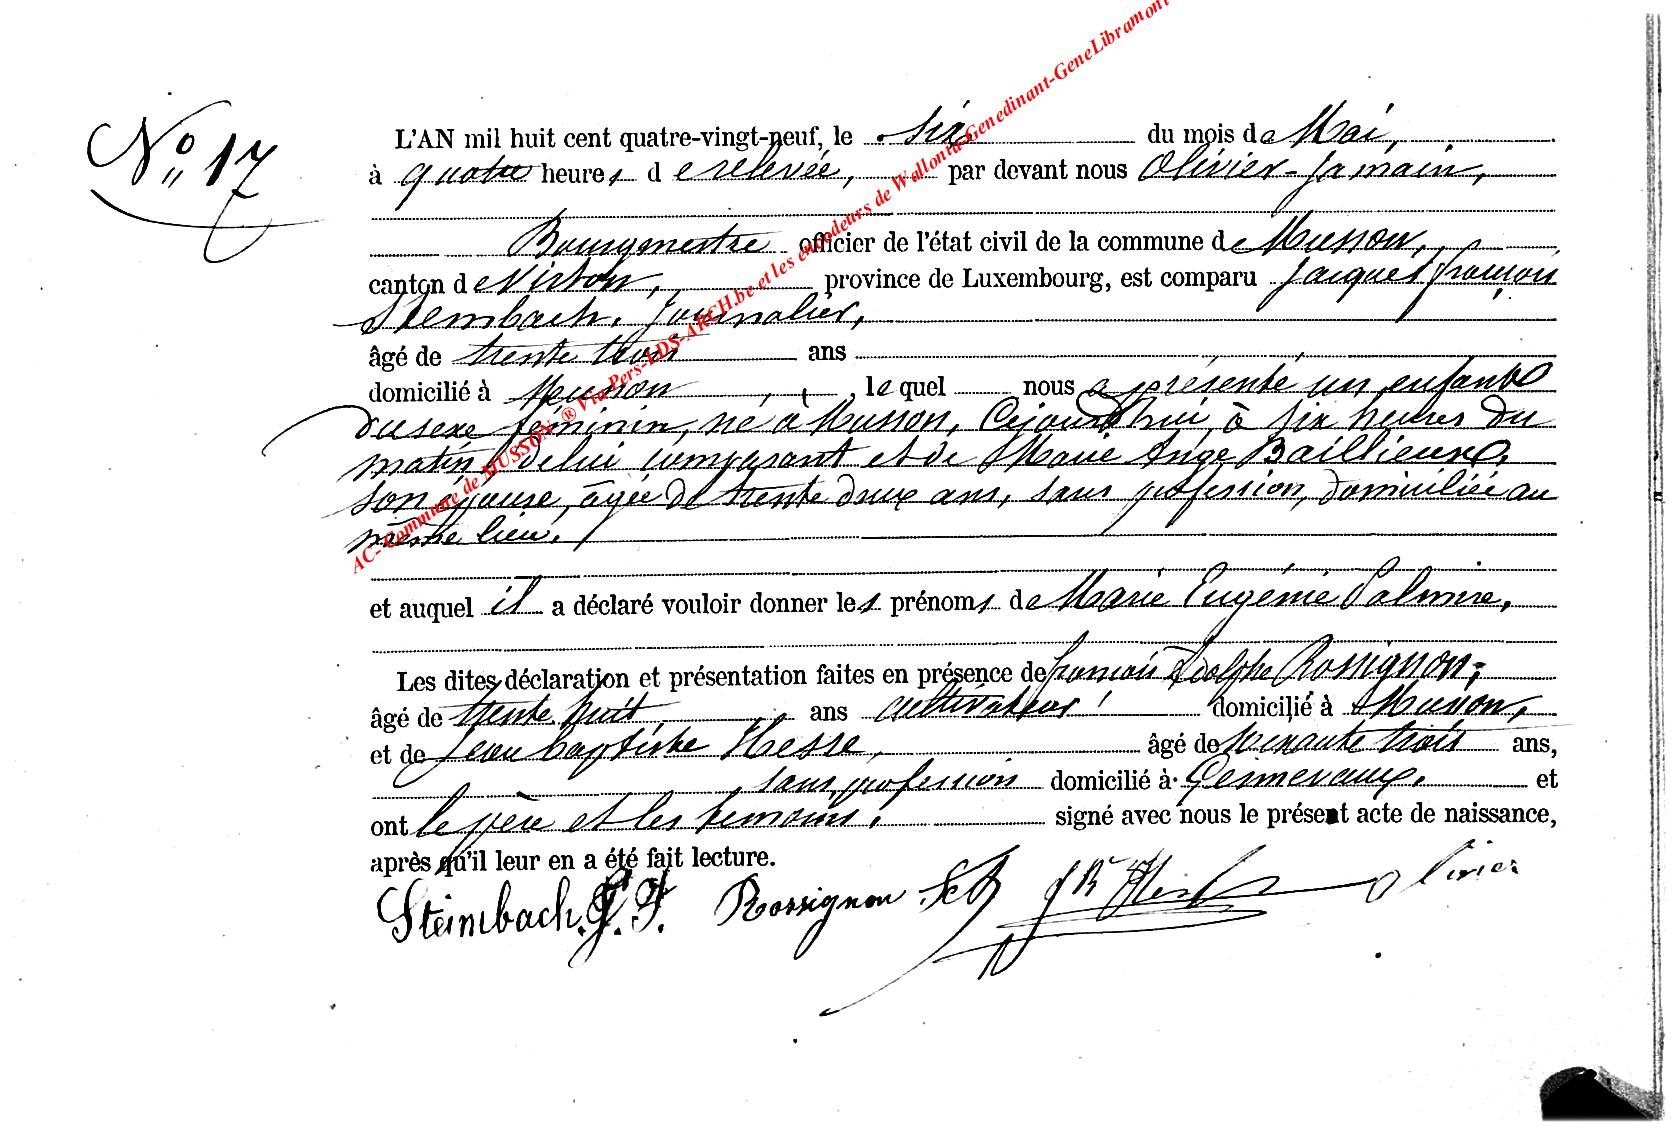 N° 17
L'AN mil huit cent quatre-vingt-neuf, le six du mois de Mai,
à quatre heures de relevée, par devant nous Olivier-Jamain,
Bourgmestre officier de l'état civil de la commune de Musson,
canton de Virton, province de Luxembourg, est comparu Jacques françois
Steimbach, journalier,
âgé de trente trois ans
domicilié à Musson, lequel nous a présenté un enfant
du sexe féminin, né à Musson, Cejourd'hui, à six heures du
matin, de lui comparant et de Marie Ange Baillieux,
son épouse, âgée de trente deux ans, sans profession, domiciliée au
même lieu.
et auquel il a déclaré vouloir donner les prénoms de Marie Eugénie Palmire,
Les dites déclaration et présentation faites en présence de françois Adolphe Rossignon,
âgé de trente huit ans cultivateur, domicilié à Musson,
et de Jean baptiste Hesse, âgé de soixante trois ans,
sans profession domicilié à Gennevaux, et
ont le père et les témoins, signé avec nous le présent acte de naissance,
après qu'il leur en a été fait lecture.
Steimbach. J. F. Rossignon JB Olivier
AC- Commune de MUSSON ® Via Pers-LDS-ARCH.be et les encodeurs de Wallonia-Genedinant-GeneLibramont